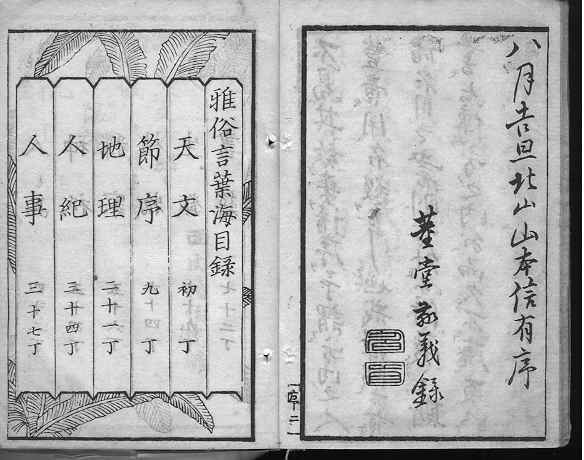 八月吉旦北山山本信有序
董堂敬義録
雅俗言葉海目録
天文 初丁
節序 九丁
地理 丁
人紀 丁
人事 三十七丁